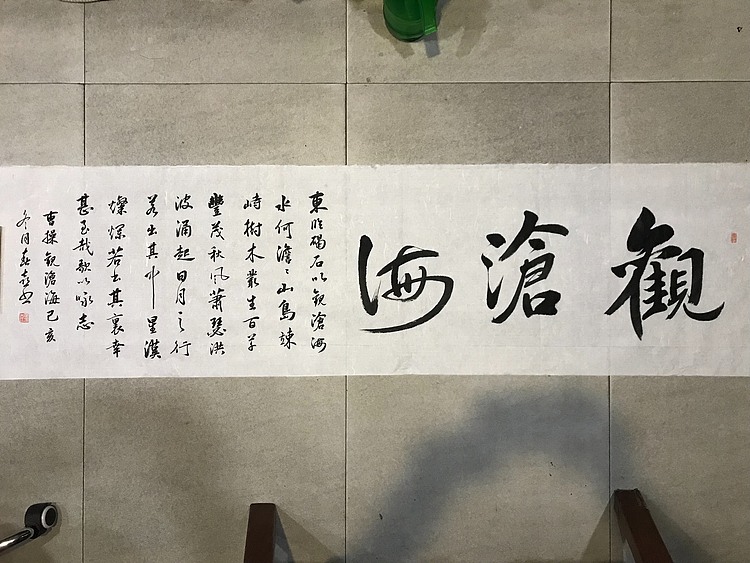 觀滄海
東臨碣石以觀滄海
水何澹〻山島竦
峙樹木叢生百草
豐茂秋風蕭瑟洪
波涌起日月之行
若出其中星漢
燦爛若出其裏幸
甚至哉歌以咏志
曹操觀滄海己亥
冬月